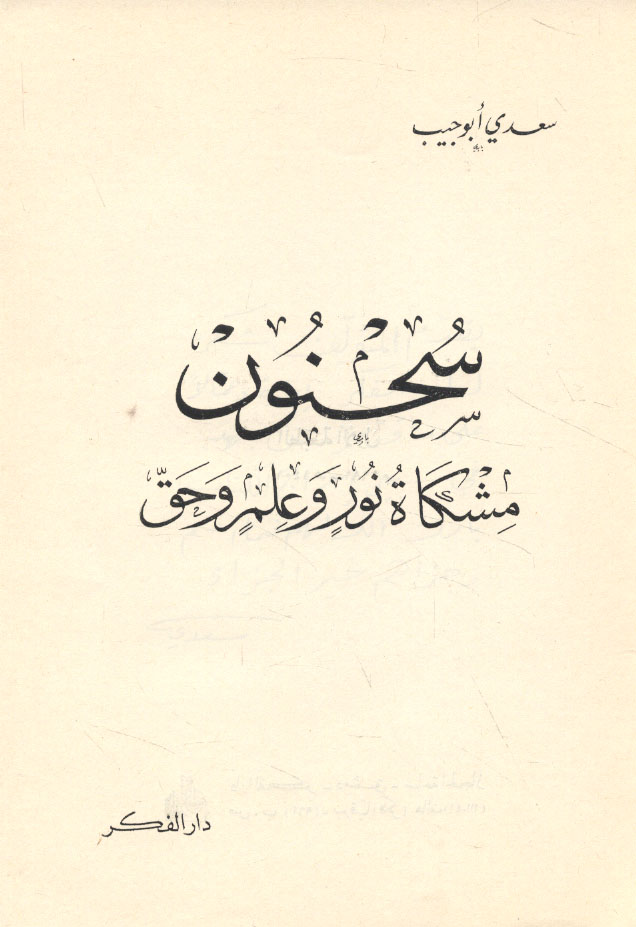 سعدي أبوجيب
سُحنُون
مِشكَاةُ نُورٍ وَعِلمٍ وَحَقّ
دار الفكر